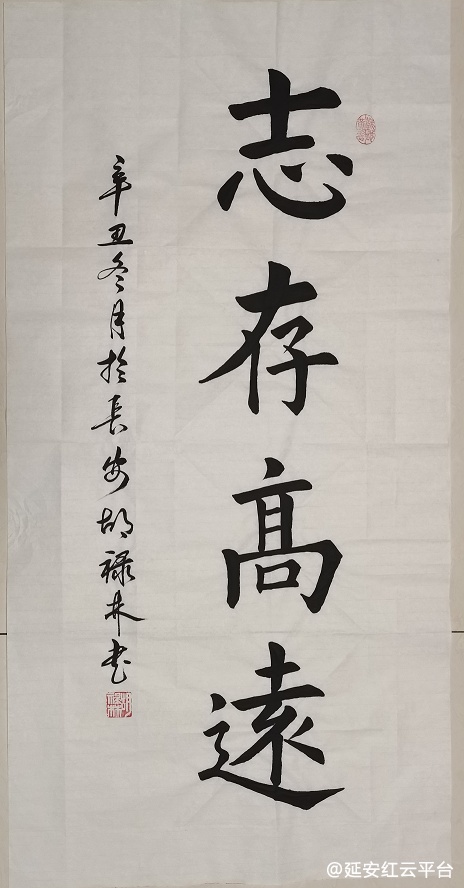 志存髙遠
辛丑冬月於長安胡禄林书
@延安红云平台